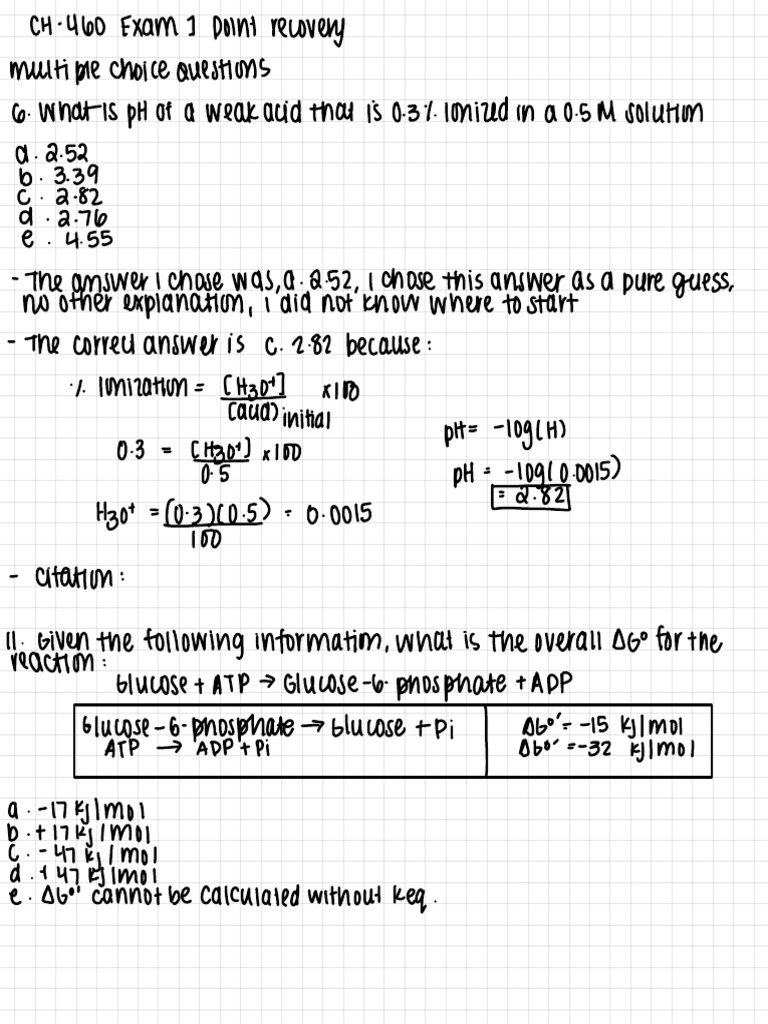 CH-460 Exam 1 Point recovery
multiple choice questions
6. What is pH of a weak acid that is 0.3% ionized in a 0.5 M solution
a. 2.52
b. 3.39
c. 2.82
d. 2.76
e. 4.55
- The answer I chose was, a. 2.52, I chose this answer as a pure guess,
no other explanation, I did not know where to start
- The correct answer is c. 2.82 because:
% Ionization = [H3O+] / [acid] initial x100
0.3 = [H3O+] / 0.5 x100
H3O+ = (0.3)(0.5) / 100 = 0.0015
pH = -log(H)
pH = -log(0.0015)
= 2.82
- Citation:
11. Given the following information, what is the overall ΔG° for the
reaction:
Glucose + ATP → Glucose-6-phosphate + ADP
Glucose-6-phosphate → Glucose + Pi ΔG°' = -15 kJ/mol
ATP → ADP + Pi ΔG°' = -32 kJ/mol
a. -17 kJ/mol
b. +17 kJ/mol
c. -47 kJ/mol
d. +47 kJ/mol
e. ΔG°' cannot be calculated without keq.